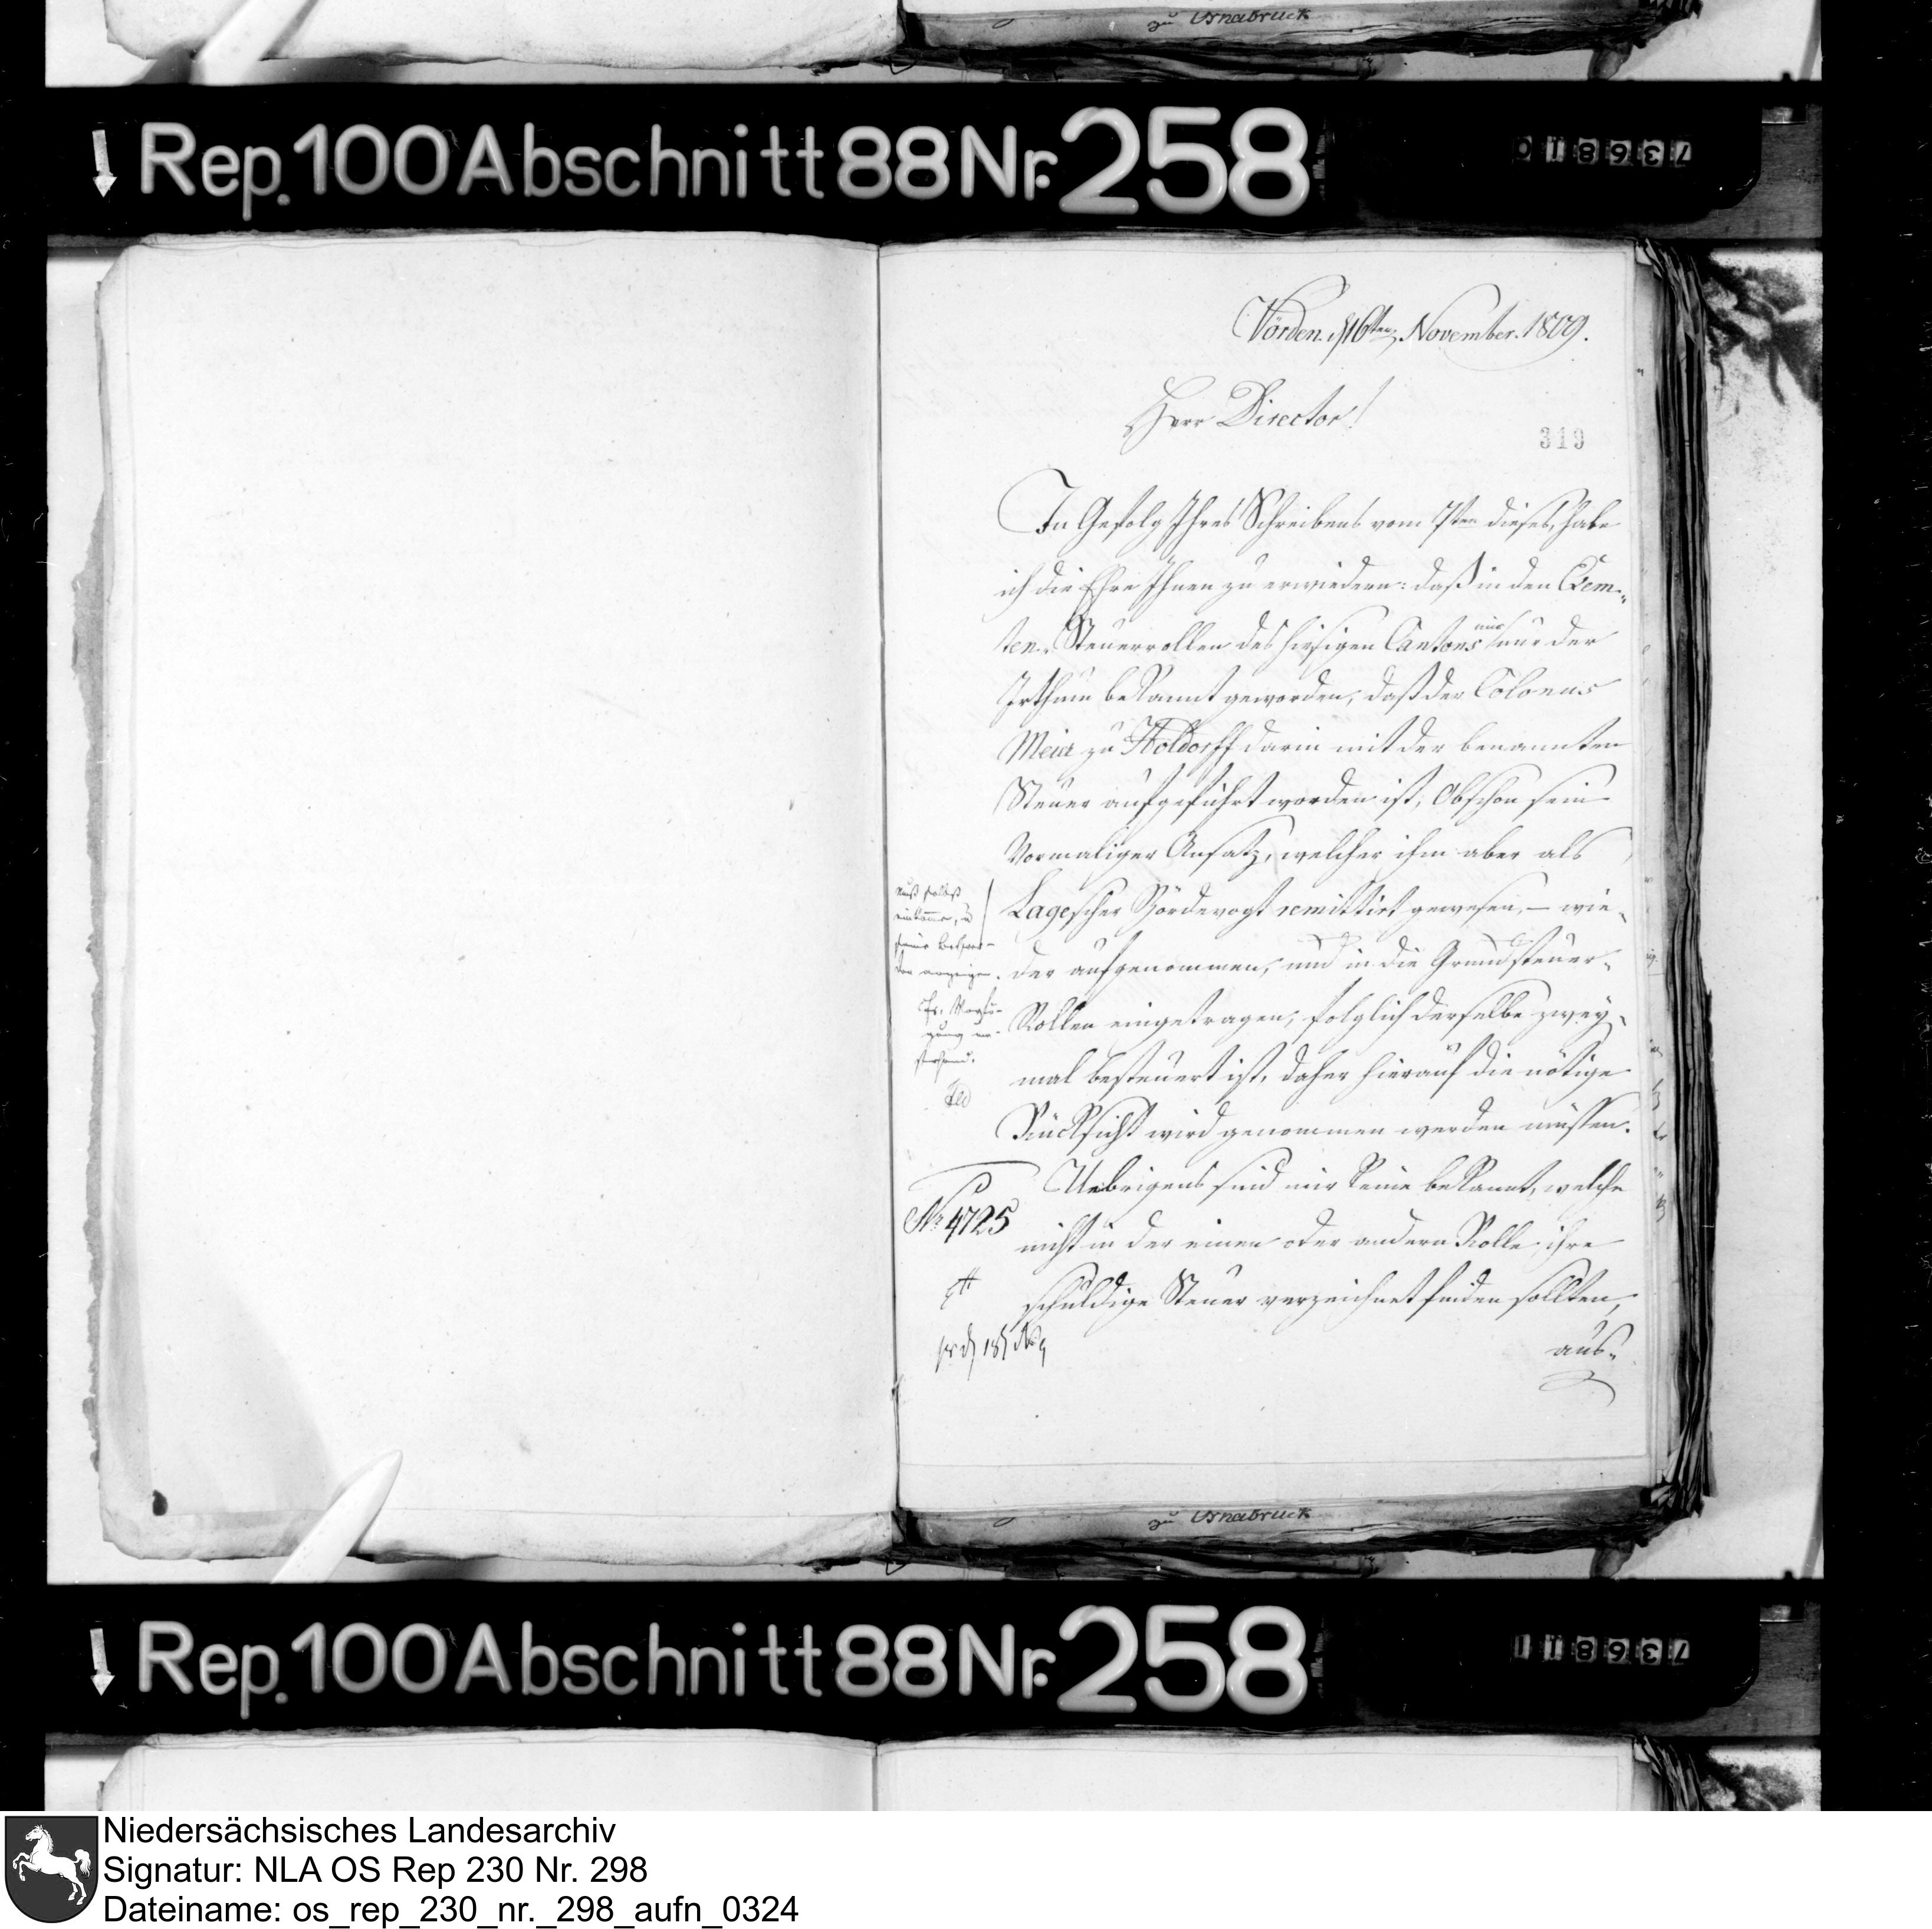 zu Osnabrück
Rep. 100 Abschnitt 88 Nr. 258
736810
Vörden. d 16ten November. 1809.
Herr Director!
319
In Gefolg Ihres Schreibens vom 7ten dieses, habe
ich die Ehre Ihnen zu erwiedern: daß in den Exem-
ten. Steuerrollen des hiesigen Cantons mir nur der
Irthum bekannt geworden, daß der Colonus
Meier zu Holdorff darin mit der benannten
Steuer aufgeführt worden ist, Obschon sein
Vormaliger Ansatz, welcher ihm aber als
Lagescher Hördevogt remittirt gewesen, – wie-
der aufgenommen, und in die Grundsteuer-
Rollen eingetragen, folglich derselbe zwey-
mal besteuert ist, daher hierauf die nötige
Rücksicht wird genommen werden müssen.
Uebrigens sind mir keine bekannt, welche
nicht in der einen oder andern Rolle ihre
schuldige Steuer verzeichnet finden sollten,
aus-
muß selbst
seine
anzeigen.
No 4725
zu Osnabrück
Rep. 100 Abschnitt 88 Nr. 258
736811
Niedersächsisches Landesarchiv
Signatur: NLA OS Rep 230 Nr. 298
Dateiname: os_rep_230_nr._298_aufn_0324